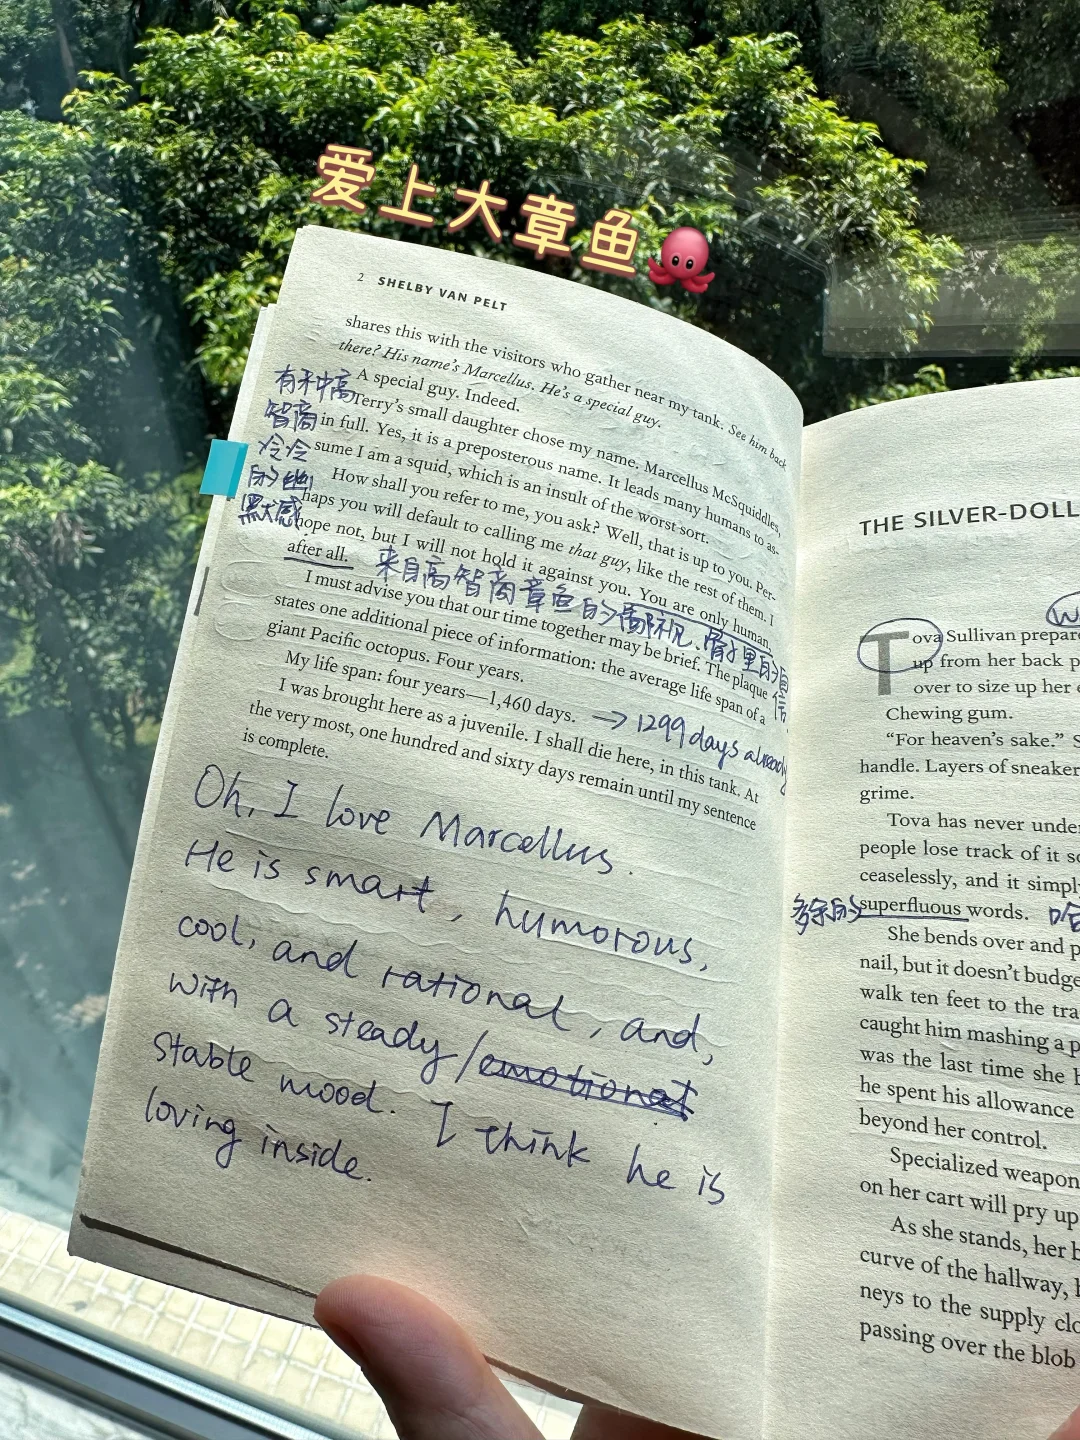 爱上大章鱼
2 SHELBY VAN PELT
shares this with the visitors who gather near my tank. See him back
there? His name's Marcellus. He's a special guy.
A special guy. Indeed.
Terry's small daughter chose my name. Marcellus McSquiddles,
in full. Yes, it is a preposterous name. It leads many humans to as-
sume I am a squid, which is an insult of the worst sort.
How shall you refer to me, you ask? Well, that is up to you. Per-
haps you will default to calling me that guy, like the rest of them. I
hope not, but I will not hold it against you. You are only human,
after all.
I must advise you that our time together may be brief. The plaque
states one additional piece of information: the average life span of a
giant Pacific octopus. Four years.
My life span: four years—1,460 days.
I was brought here as a juvenile. I shall die here, in this tank. At
the very most, one hundred and sixty days remain until my sentence
is complete.
有种高
智商
冷冷
的幽
默感
来自高智商章鱼的 骨子里的
→ 1299 days already
Oh, I love Marcellus.
He is smart, humorous,
cool, and rational, and,
with a steady/emotional
stable mood. I think he is
loving inside.
THE SILVER-DOLL
Tova Sullivan prepare
up from her back p
over to size up her
Chewing gum.
"For heaven's sake." S
handle. Layers of sneaker
grime.
Tova has never unde
people lose track of it so
ceaselessly, and it simpl
superfluous words.
多余的
She bends over and p
nail, but it doesn't budge
walk ten feet to the tra
caught him mashing a p
was the last time she h
he spent his allowance
beyond her control.
Specialized weapon
on her cart will pry up
As she stands, her b
curve of the hallway,
neys to the supply clo
passing over the blob